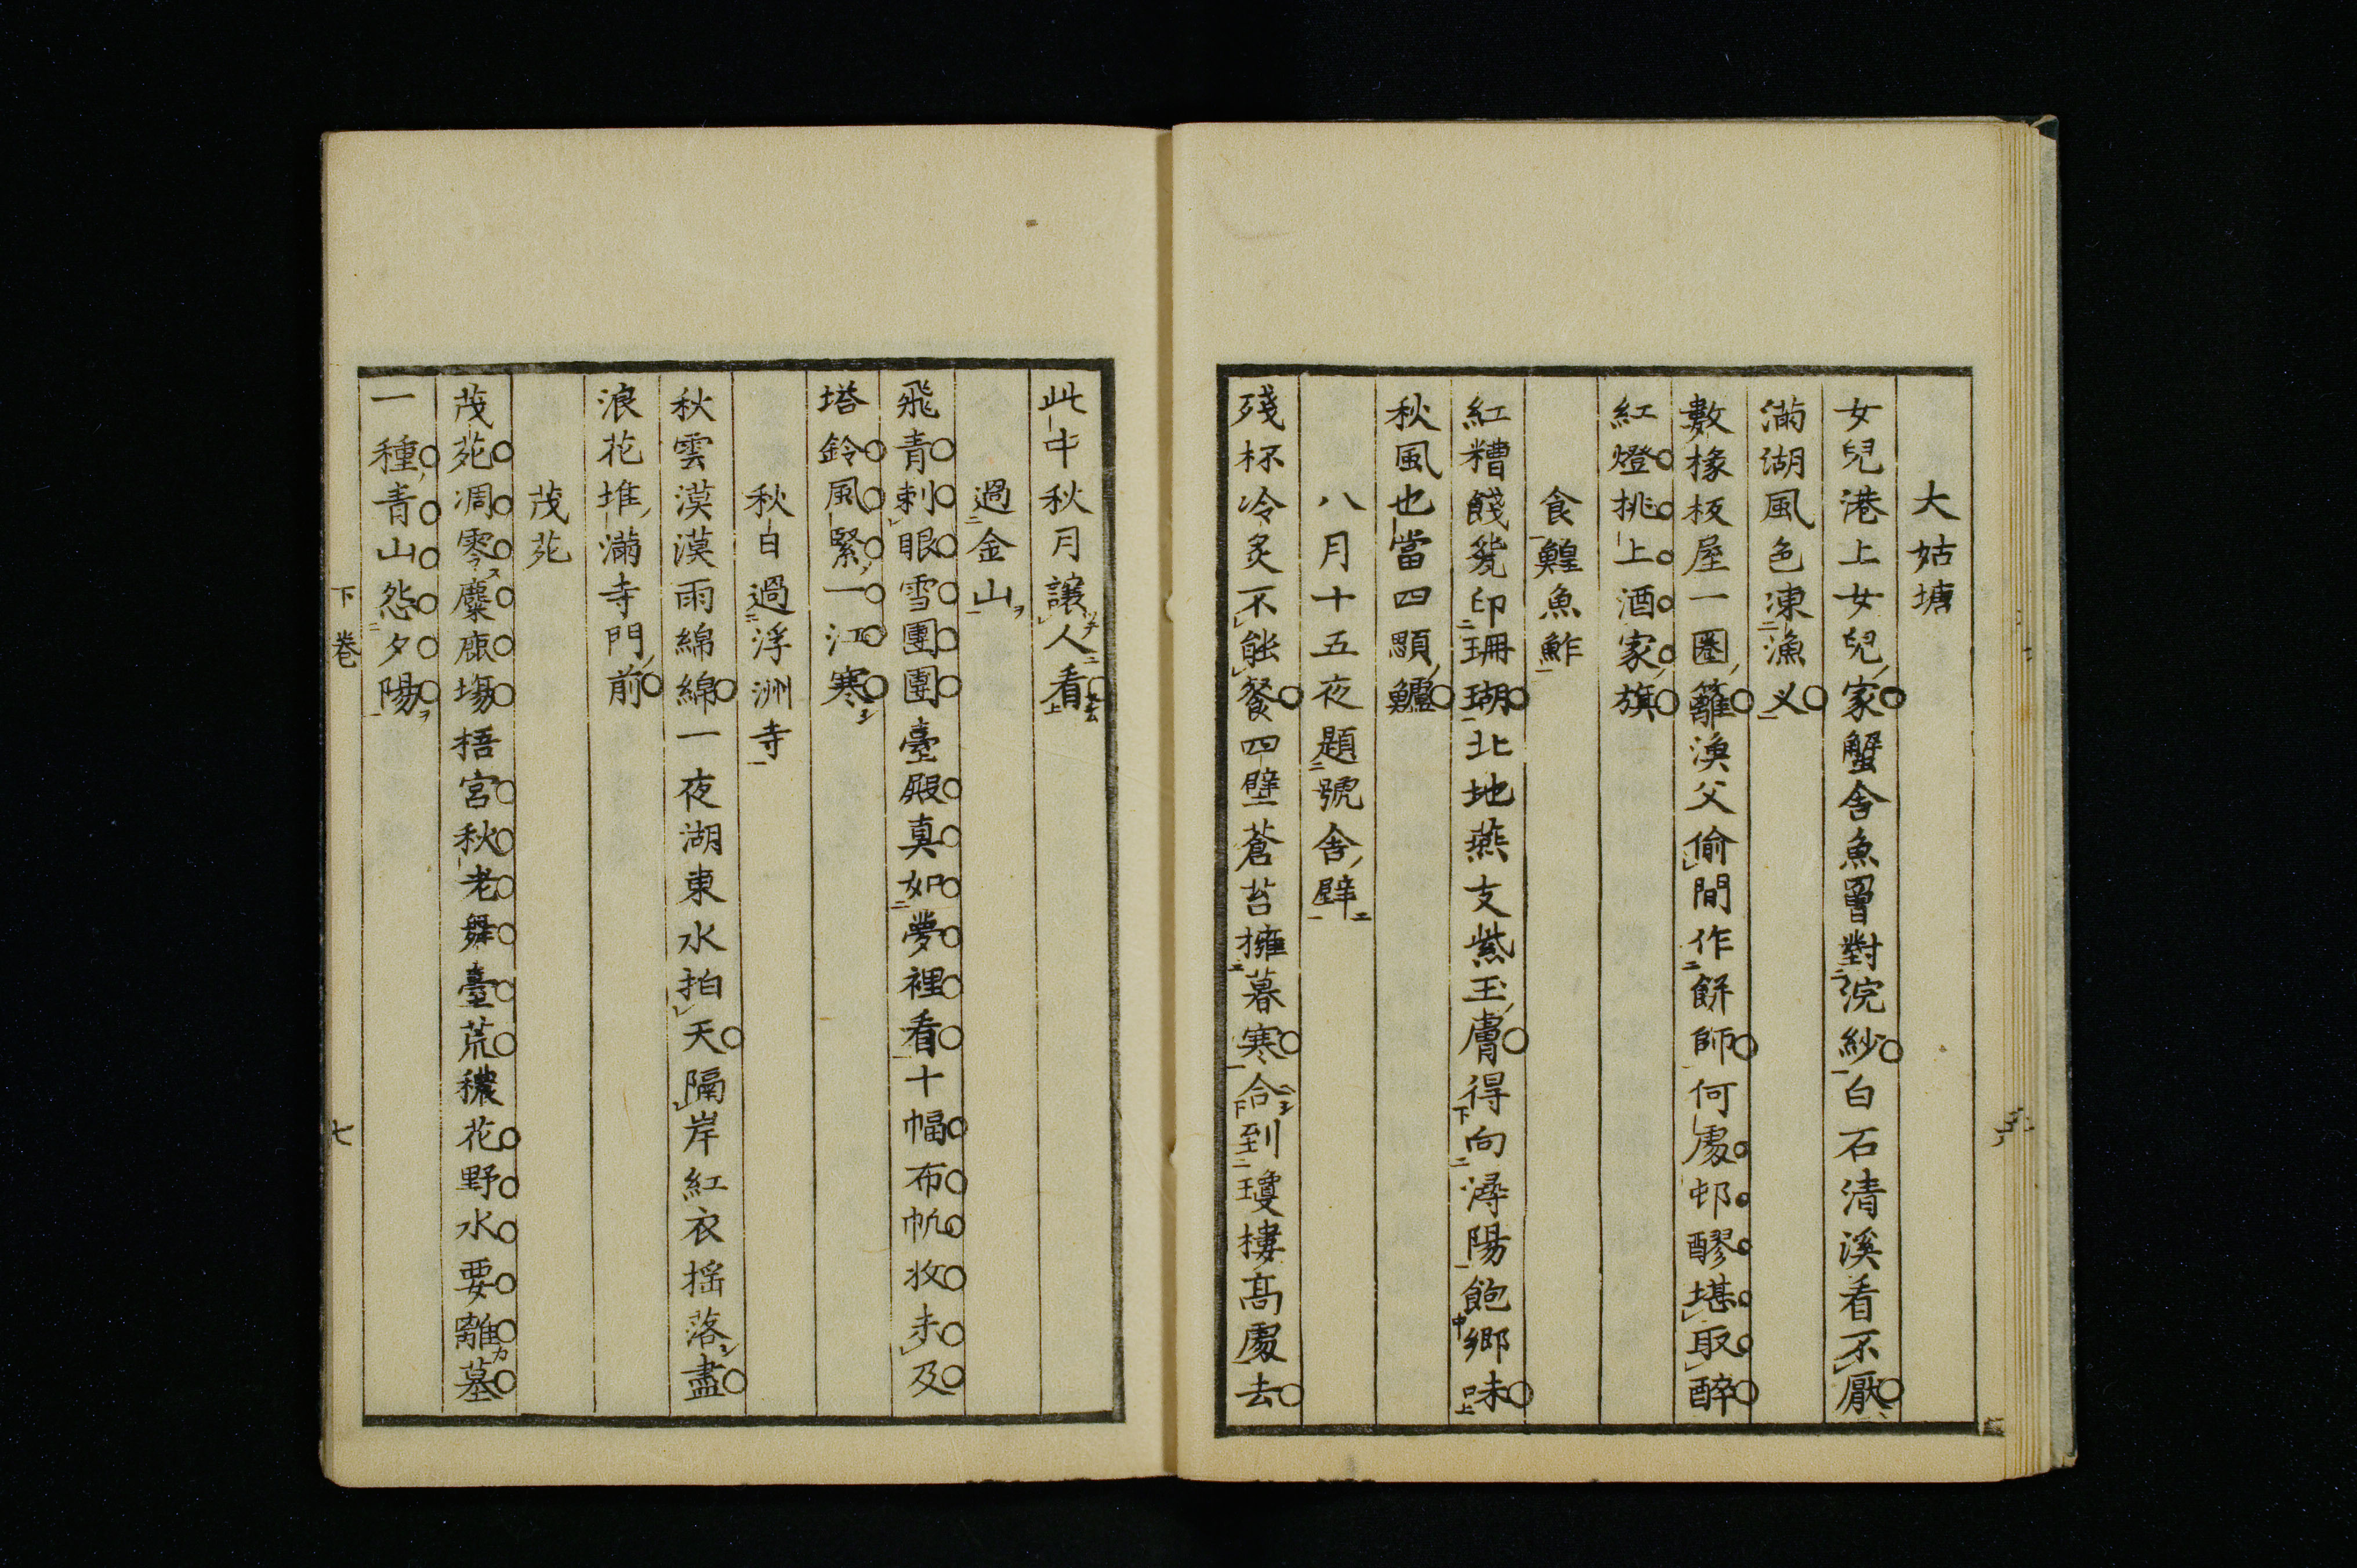 大姑塘
女兒港上女兒家蟹舍魚罾對浣紗白石清溪看不厭
滿湖風色凍漁义
數椽板屋一圏籬漁父偷間作餅師何處邨醪堪取醉
紅燈挑上酒家旗
食鰉魚鮓
紅糟餞瓮印珊瑚北地燕支紫玉膚得向潯陽飽鄉味
秋風也當四顋鱸
八月十五夜題號舍壁
殘杯冷炙不能餐四壁蒼苔擁暮寒合到瓊樓高處去
此中秋月讓人看
過金山
飛青刺眼雪團團臺殿真如夢裡看十幅布帆收未及
塔鈴風緊一江寒
秋日過浮洲寺
秋雲漠漠雨綿綿一夜湖東水拍天隔岸紅衣搖落盡
浪花堆滿寺門前
茂苑
茂苑凋零麋鹿場梧宮秋老舞臺荒穠花野水要離墓
一種青山怨夕陽
下卷
七